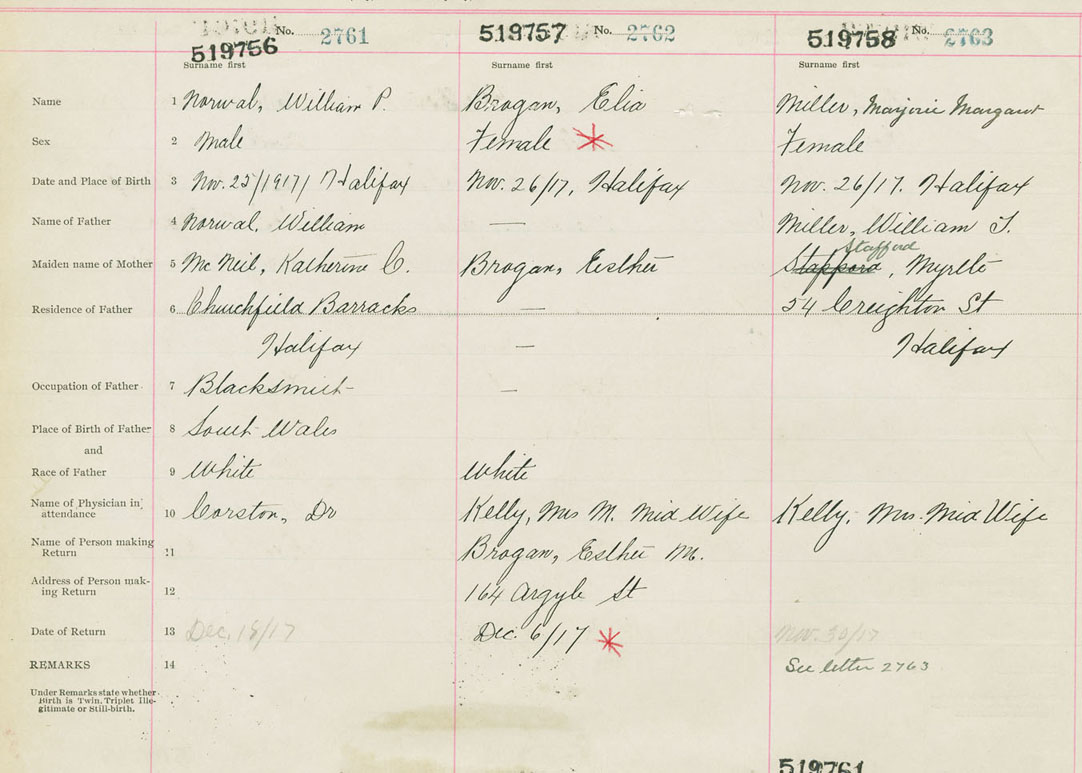 No. 2761 519757 No. 2762 519758 No. 2763
519756
Surname first Surname first Surname first
Name 1 Norwal, William P. Brogan, Elia Miller, Marjorie Margaret
Sex 2 Male Female Female
Date and Place of Birth 3 Nov. 25/1917/ Halifax Nov. 26/17, Halifax Nov. 26/17. Halifax
Name of Father 4 Norwal, William — Miller, William J.
Stafford
Maiden name of Mother 5 McNeil, Katherine C. Brogan, Esther Stappord, Myrtle
Residence of Father 6 Churchfield Barracks — 54 Creighton St
Halifax — Halifax
Occupation of Father 7 Blacksmith —
Place of Birth of Father 8 South Wales
and
Race of Father 9 White White
Name of Physician in attendance 10 Corston, Dr Kelly, Mrs M. Mid Wife Kelly, Mrs. Mid Wife
Name of Person making Return 11 Brogan, Esther M.
Address of Person mak-
ing Return 12 164 Argyle St
Date of Return 13 Dec, 18/17 Dec. 6/17 Nov. 30/17
REMARKS 14 See letter 2763
Under Remarks state whether
Birth is Twin, Triplet Ille-
gitimate or Still-birth.
519761